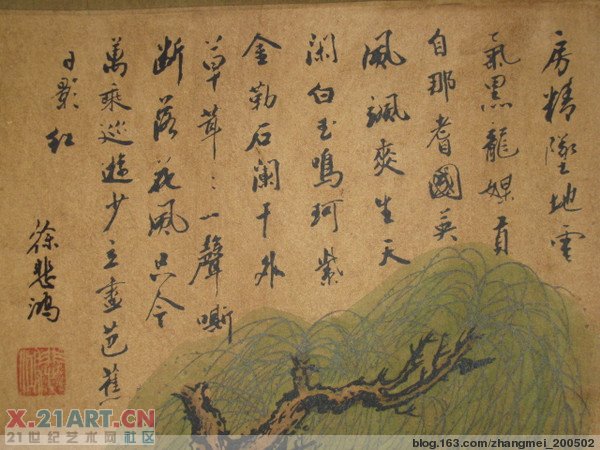 房精墜地雲
氣黑龍媒貢
自那耆國英
風颯爽生天
閑白玉鳴珂紫
金勒石闌干外
草茸〻一聲嘶
断落花風只今
萬乘巡遊少立盡芭蕉
日影紅
徐悲鴻
X.21ART.CN
21世纪艺术网社区
blog.163.com/zhangmei_200502